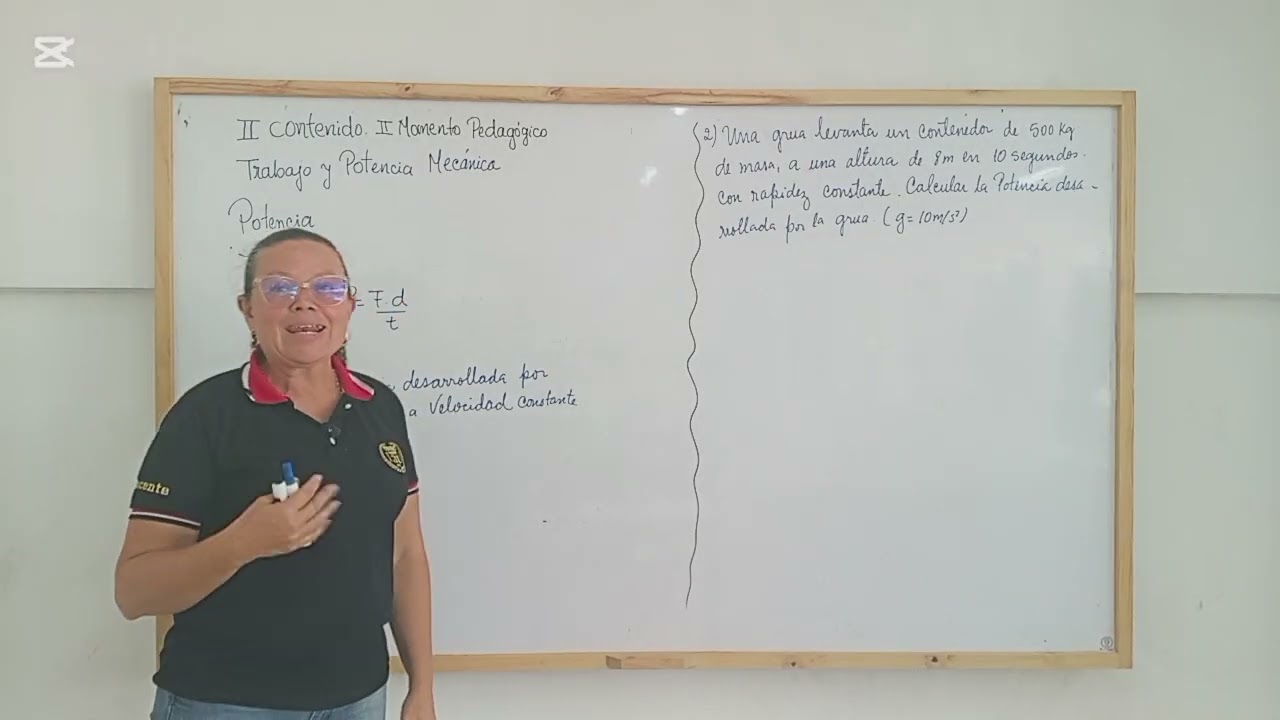 II contenido. II Momento Pedagógico
Trabajo y Potencia Mecánica
Potencia
= F.d
t
desarrollada por
a Velocidad constante
2) Una grua levanta un contenedor de 500 kg
de masa, a una altura de 8m en 10 segundos.
con rapidez constante. Calcular la Potencia desa-
rrollada por la grua. (g= 10m/s²)
cente